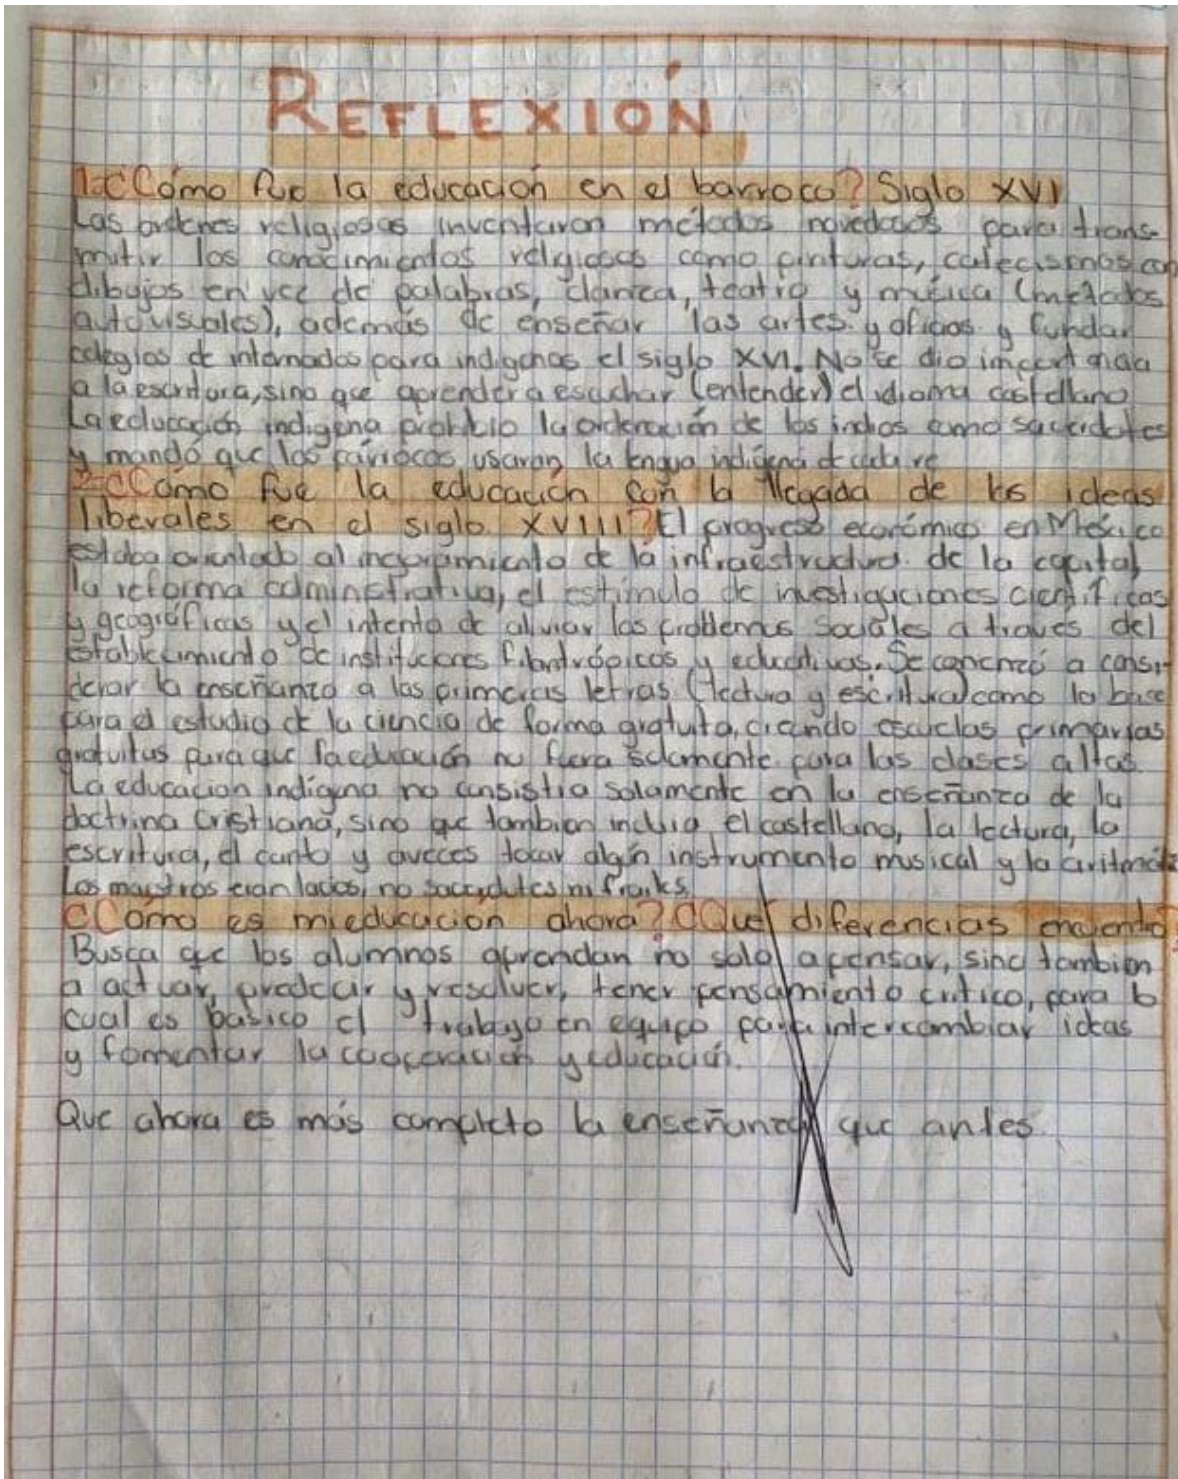 REFLEXIÓN
1-¿Cómo fue la educación en el barroco? Siglo XVI
Las ordenes religiosas inventaron métodos novedosos para trans-
mitir los conocimientos religiosos como pinturas, catecismos con
dibujos en vez de palabras, danza, teatro y música (métodos
autovisuales), además de enseñar las artes y oficios y fundar
colegios de internados para indigenas el siglo XVI. No se dio importancia
a la escritura, sino que aprender a escuchar (entender) el idioma castellano
La educación indigena prohibio la ordenación de los indios como sacerdotes
y mandó que los párrocos usaran la lengua indigena de
2-¿Cómo fue la educación con la llegada de las ideas
liberales en el siglo XVIII? El progreso económico en México
estaba orientado al mejoramiento de la infraestructura de la capital,
la reforma administrativa, el estimulo de investigaciones cientificas
y geográficas y el intento de aliviar los problemas sociales a traves del
establecimiento de instituciones filantrópicas y educativas. Se comenzó a consi-
derar la enseñanza a las primeras letras (lectura y escritura) como la base
para el estudio de la ciencia de forma gratuita, creando escuelas primarias
gratuitas para que la educación no fuera solamente para las clases altas.
La educacion indigena no consistia solamente en la enseñanza de la
doctrina Cristiana, sino que tambien incluia el castellano, la lectura, la
escritura, el canto y aveces tocar algún instrumento musical y la
Los maestros eran laicos, no sacerdotes ni frailes.
¿Como es mi educación ahora? ¿Que diferencias encuentro?
Busca que los alumnos aprendan no solo a pensar, sino tambien
a actuar, predecir y resolver, tener pensamiento critico, para lo
cual es basico el trabajo en equipo para intercambiar ideas
y fomentar la cooperación y educación.
Que ahora es más completo la enseñanza que antes.